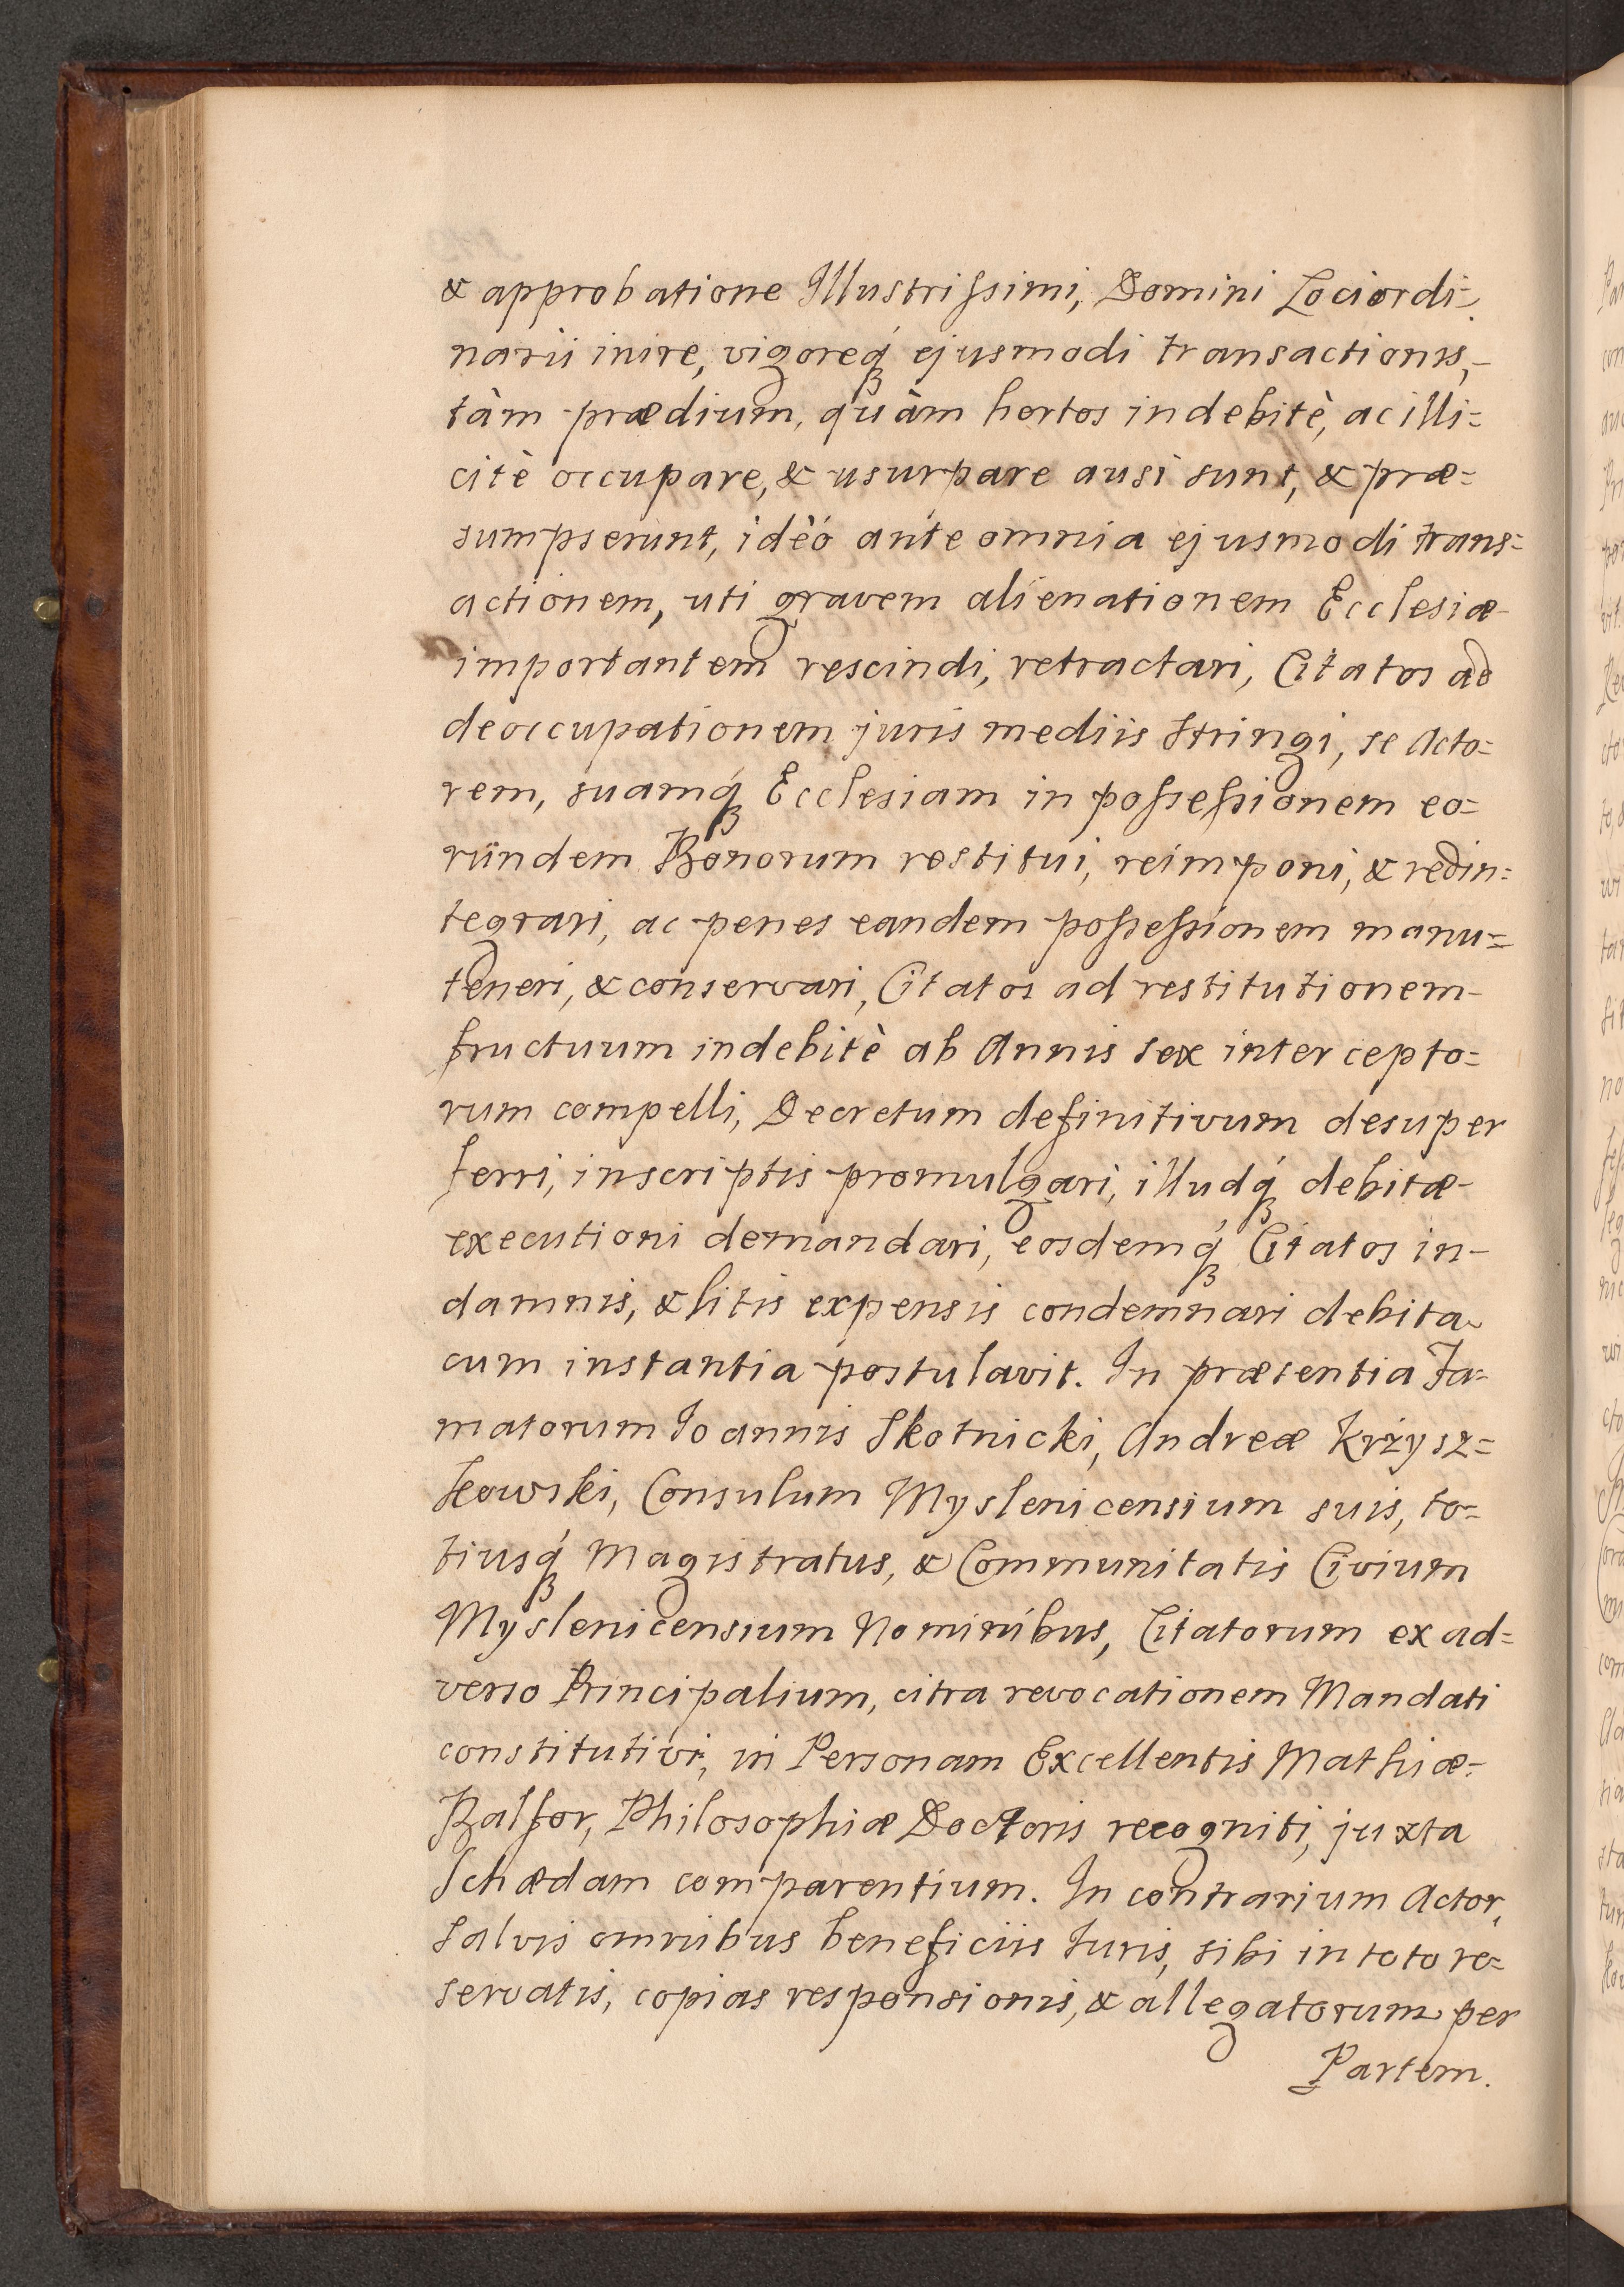 & approbatione Illustrissimi, Domini Lociordi=
narii inire, vigoreq́ꝫ ejusmodi transactionis,
tàm prædium, quàm hortos indebitè, ac illi=
citè occupare, & usurpare ausi sunt, & præ=
sumpserunt, idèó ante omnia ejusmodi trans=
actionem, uti gravem alienationem Ecclesiæ
importantem rescindi, retractari, Citatos ad
deoccupationem juris mediis stringi, se Acto=
rem, suamq́ꝫ Ecclesiam in possessionem eo=
rundem Bonorum restitui, reimponi, & redin=
tegrari, ac penes eandem possessionem manu=
teneri, & conservari, Citatos ad restitutionem
fructuum indebitè ab Annis sex intercepto=
rum compelli, Decretum definitivum desuper
ferri, inscriptis promulgari, illudq́ꝫ debitæ
executioni demandari, eosdemq́ꝫ Citatos in
damnis, & litis expensis condemnari debita
cum instantia postulavit. In præsentia Fa=
matorum Joannis Skotnicki, Andreæ Krżysz=
kowski, Consulum Myslenicensium suis, to=
tiusq́ꝫ Magistratus, & Communitatis Civium
Myslenicensium Nominibus, Citatorum ex ad=
verso Principalium, citra revocationem Mandati
constitutivi, in Personam Excellentis Mathiæ
Balfor, Philosophiæ Doctoris recogniti, juxta
Schædam comparentium. In contrarium Actor,
salvis omnibus beneficiis Juris, sibi in toto re=
servatis, copias responsionis, & allegatorum per
Partem.